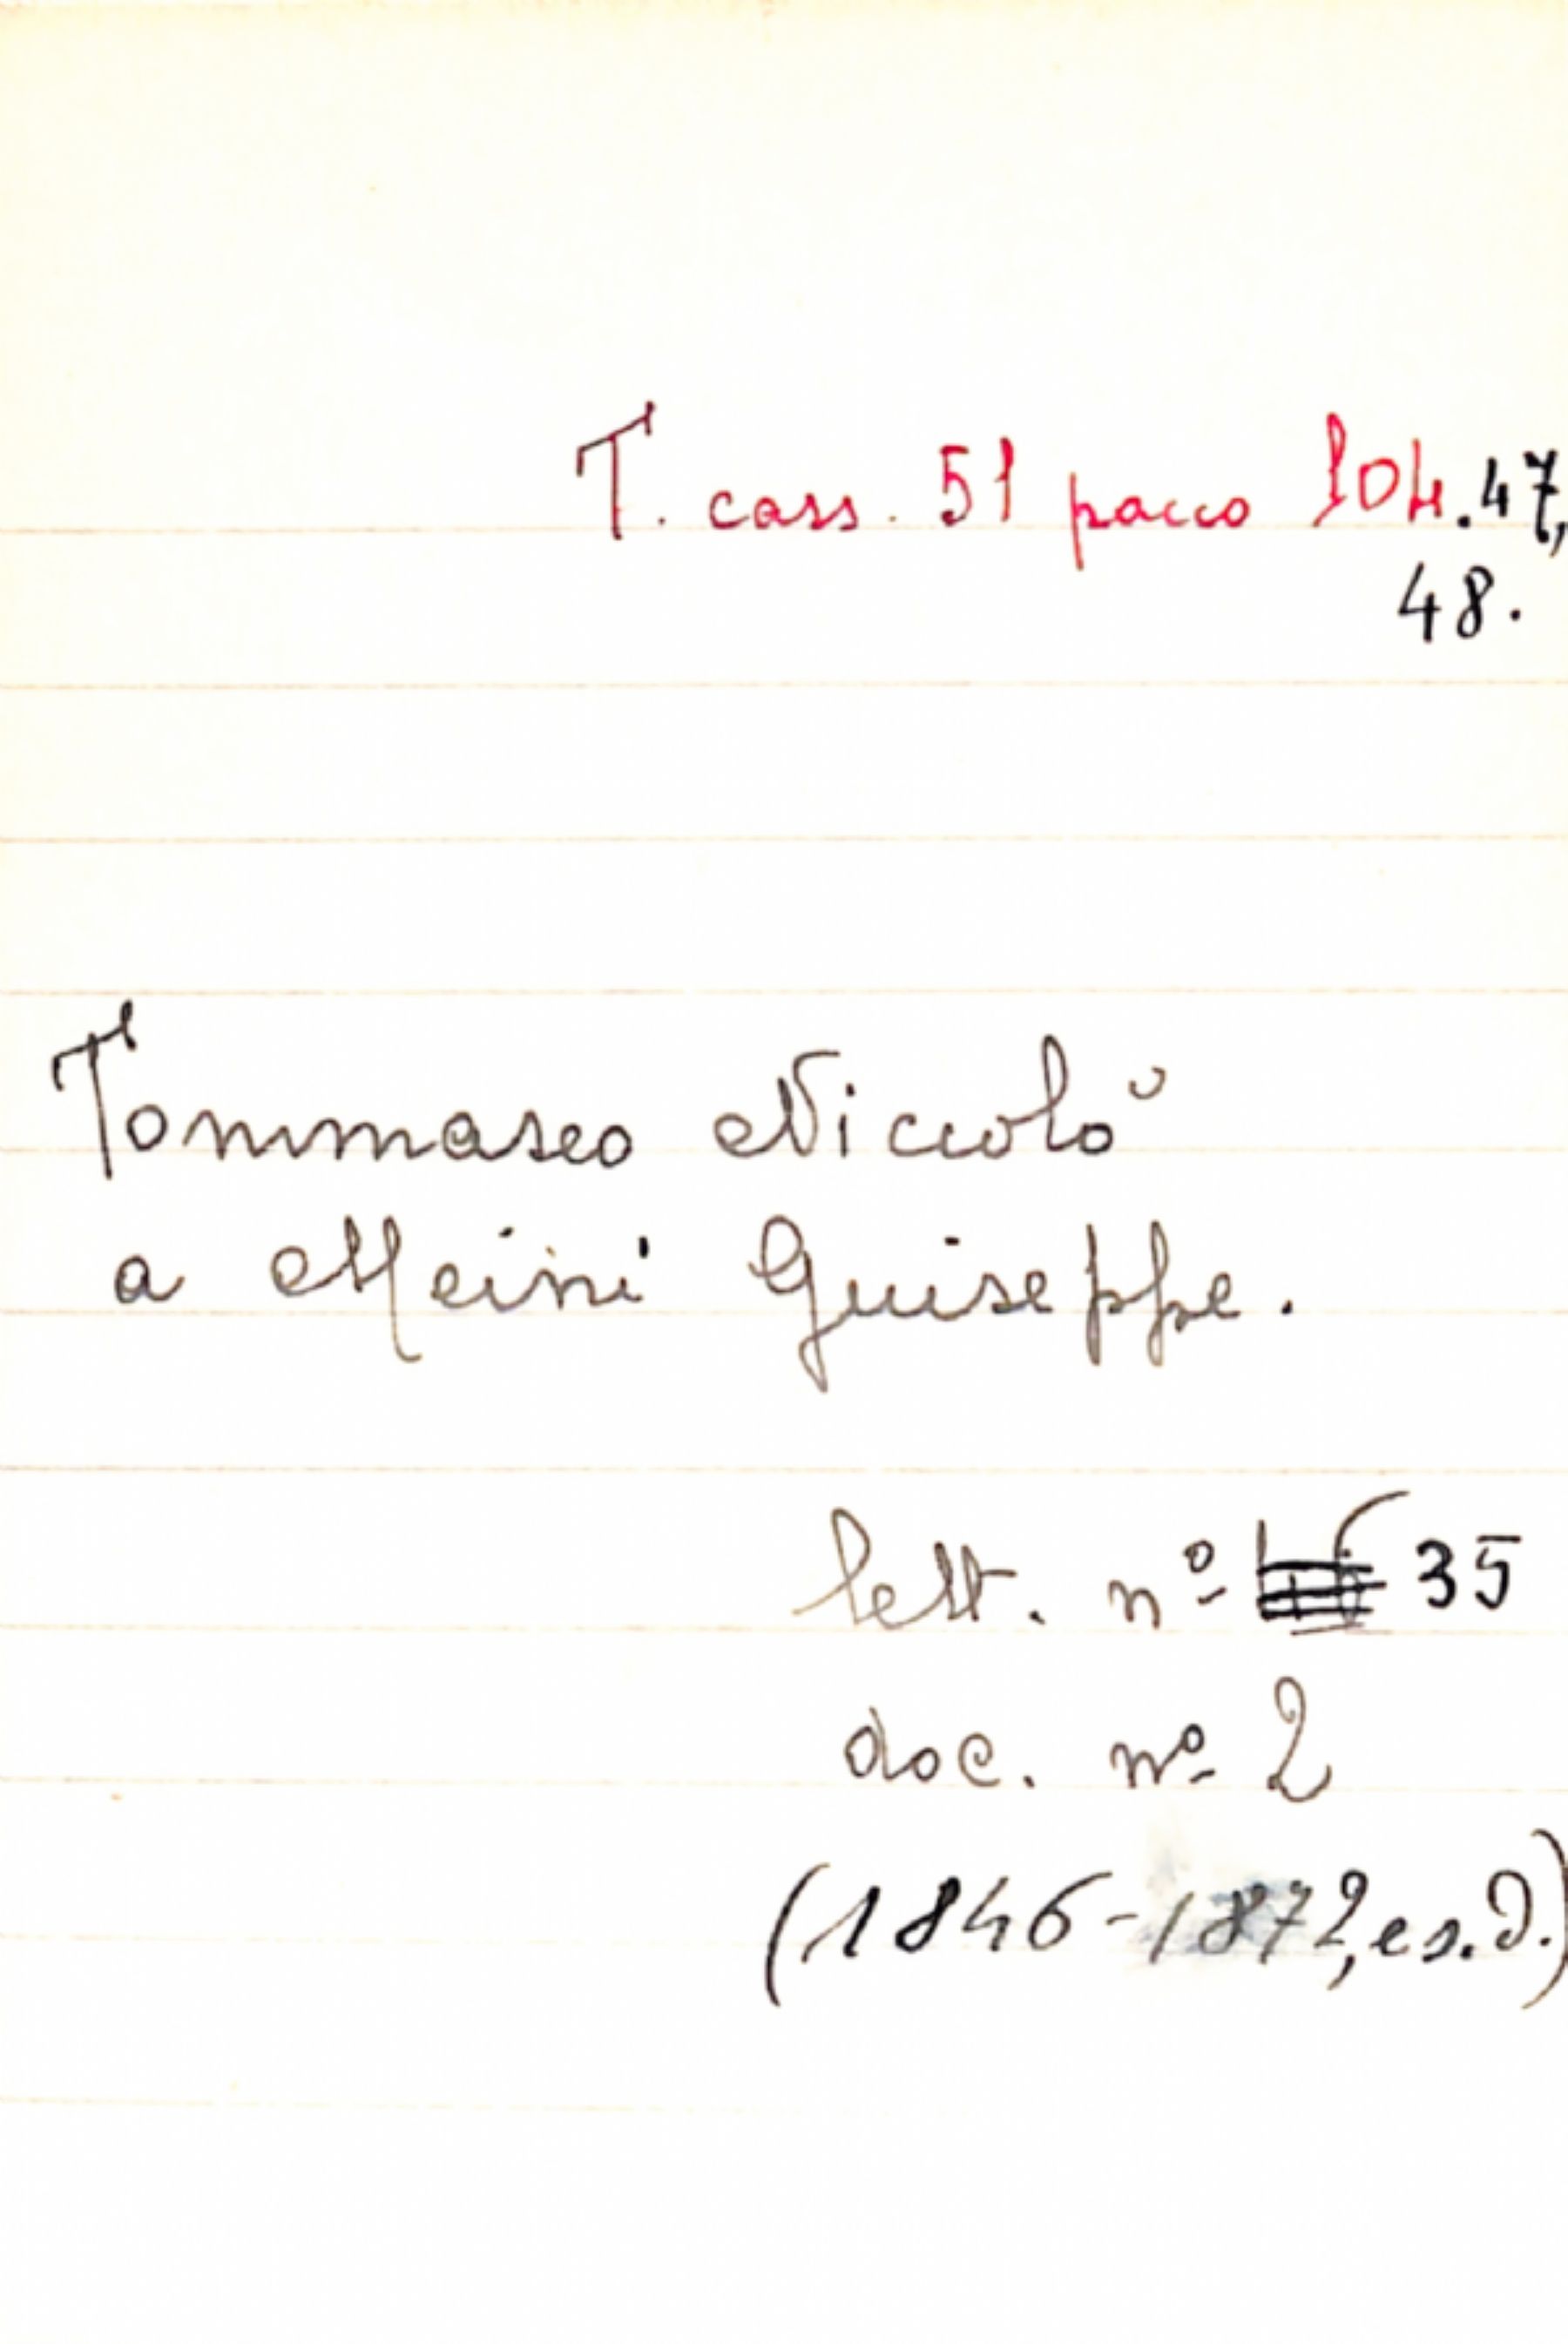 T. cass. 51 pacco 104.47,
48.
Tommaseo Niccolò
a Meini Giuseppe.
lett. nº 35
doc. nº 2
(1846-1872, e s.d.)